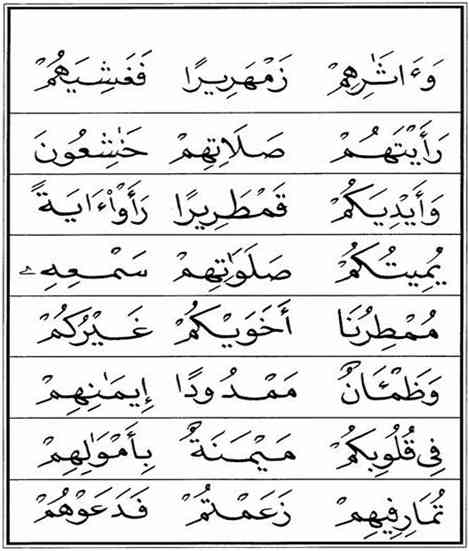 وَءَاثَٰرِهِمْ زَمْهَرِيرًا فَغَشِيَهُمْ
رَأَيْتَهُمْ صَلَاتِهِمْ خَٰشِعُونَ
وَأَيْدِيَكُمْ قَمْطَرِيرًا رَأَوْا۟ءَايَةً
يُمِيتُكُمْ صَلَوَٰتِهِمْ سَمْعِهِۦ
مُمْطِرُنَا أَخَوَيْكُمْ غَيْرُكُمْ
وَظَمْـَٔانٌ مَمْدُودًا إِيمَٰنِهِمْ
فِي قُلُوبِكُمْ مَيْمَنَةٌ بِأَمْوَٰلِهِمْ
تُمَارِفِيهِمْ زَعَمْتُمْ فَدَعَوْهُمْ